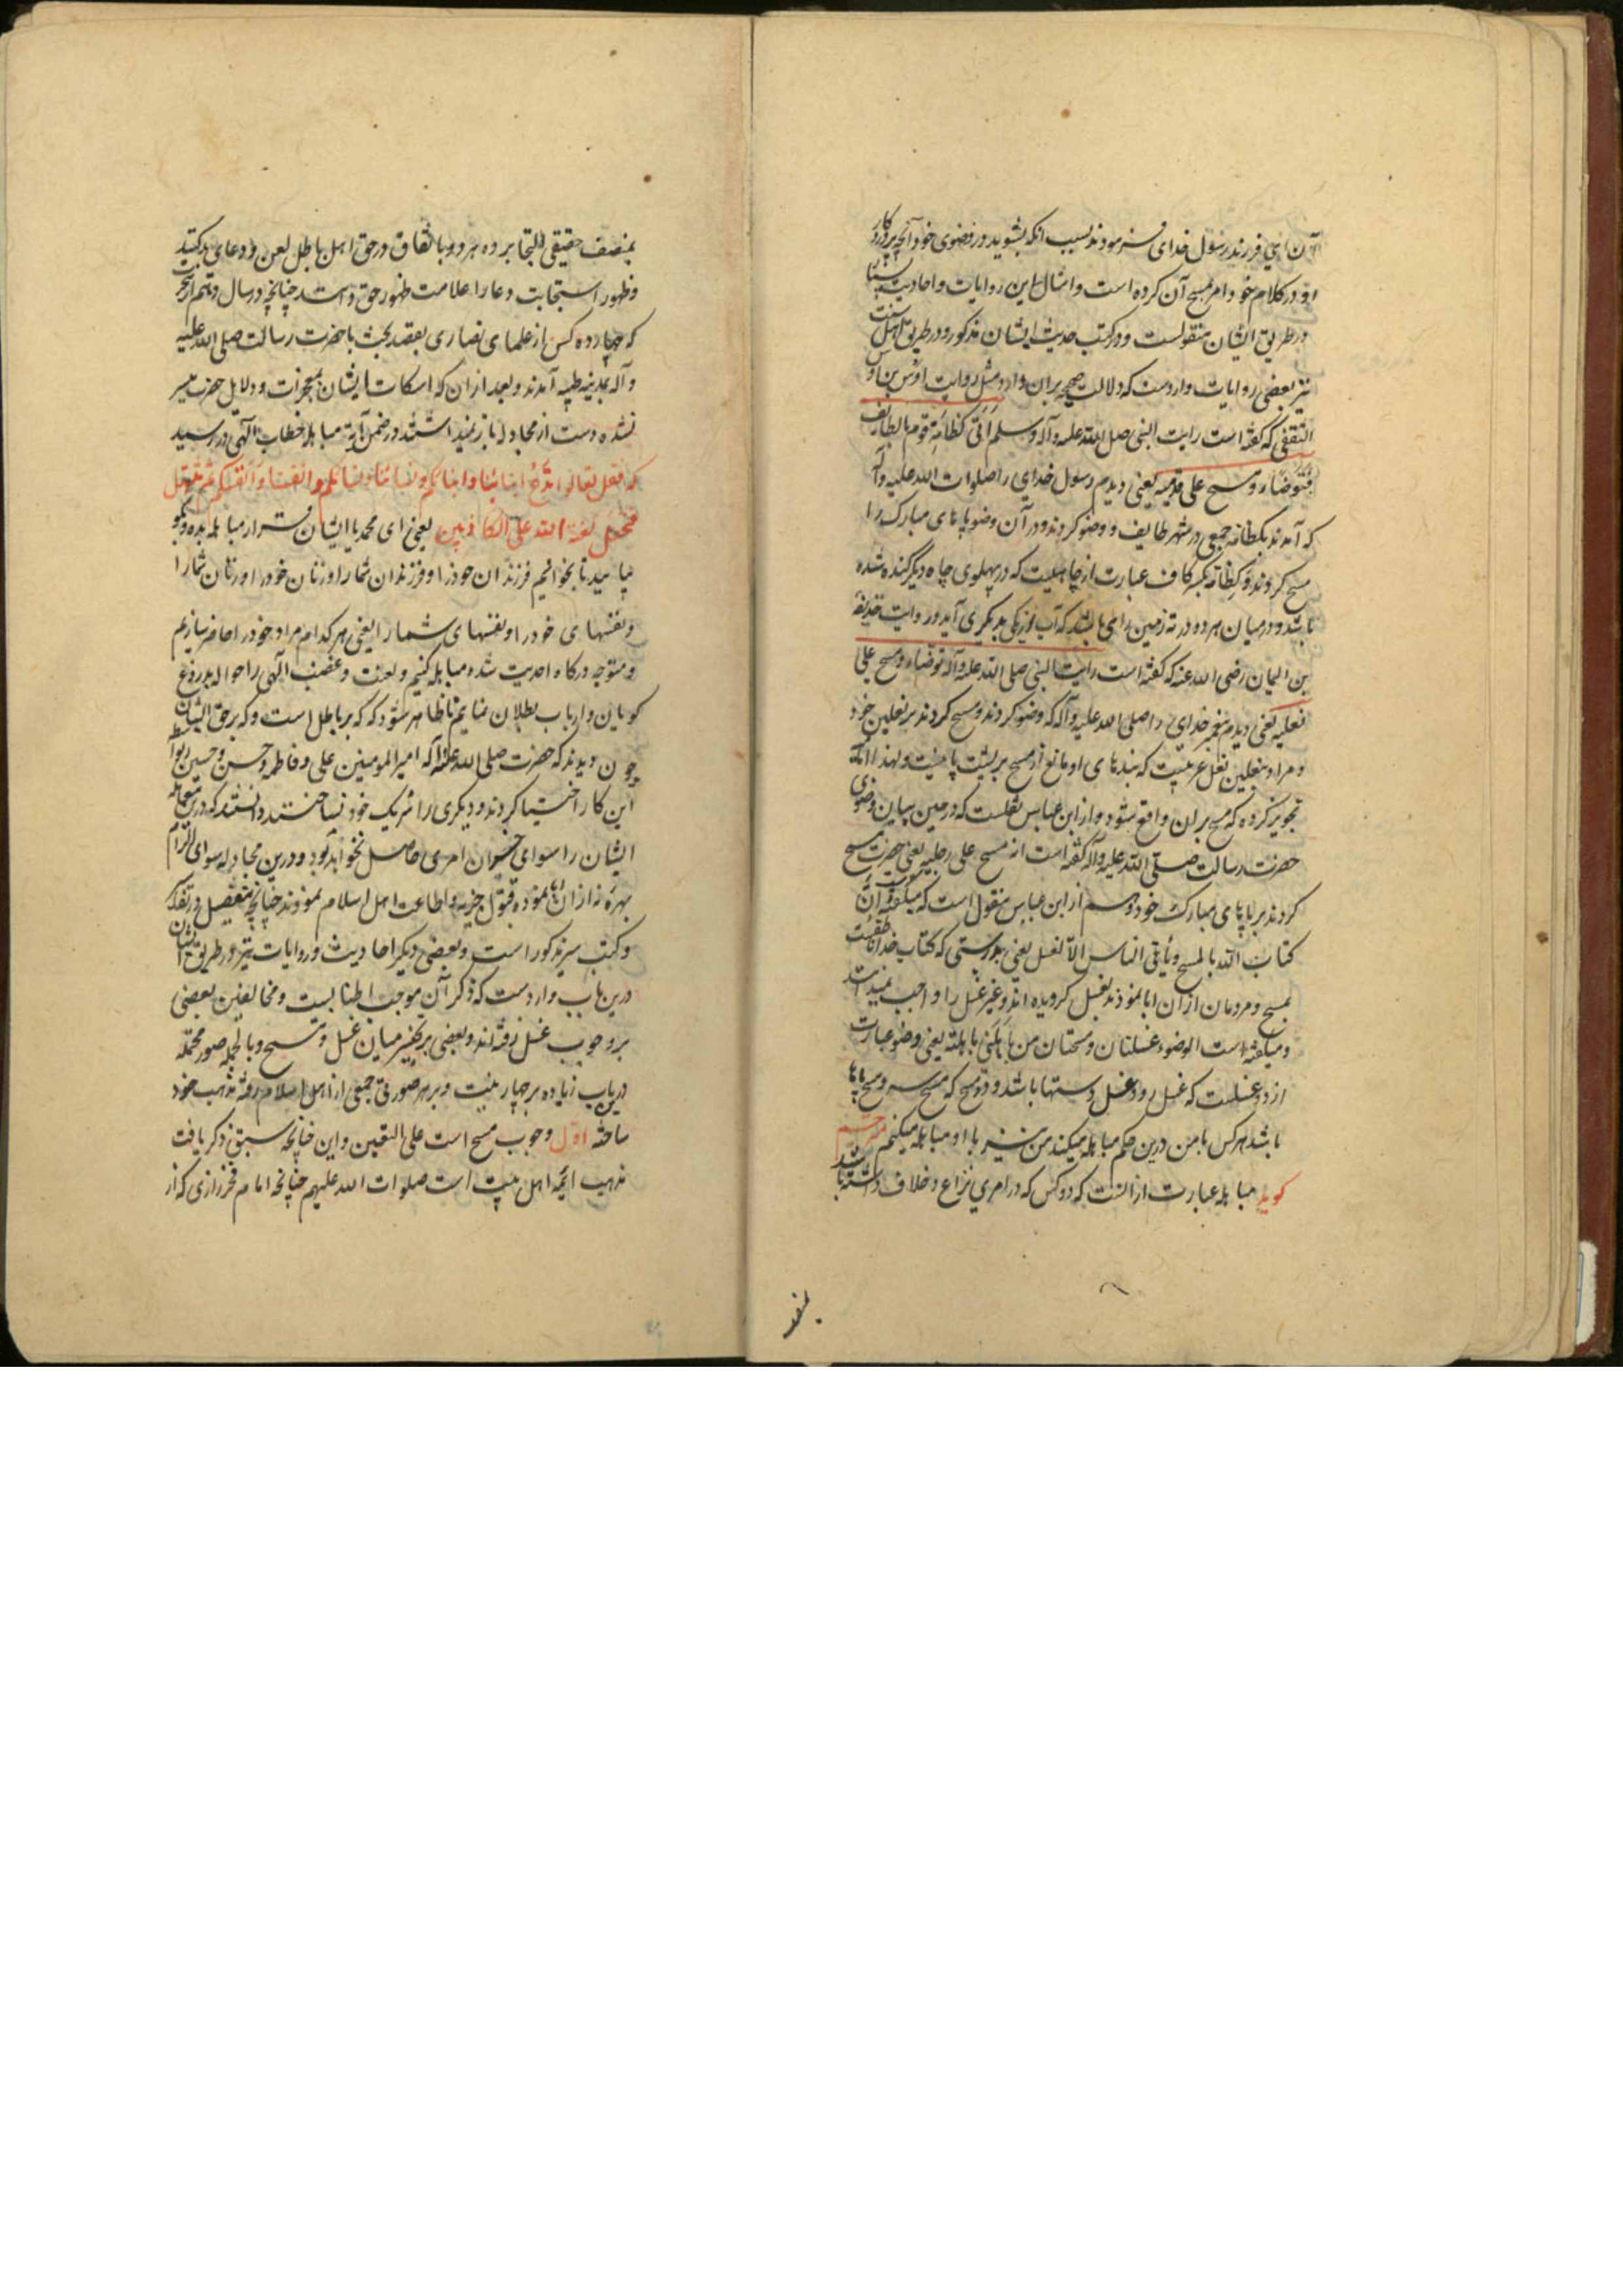 آن ای فرزند رسول خدای فرمودند بسبب انکه بشوید در وضوی خود آنچه پروردکار
او در کلام خود امر بمسح آن کرده است و امثال این روایات و احادیث بسیار
در طریق ایشان منقولست و در کتب حدیث ایشان مذکور و در طریق اهل سنت
نیز بعضی روایات واردست که دلالت صحیحه بران دارد مثل روایت اوس بن اوس
الثقفی که کفته است رایت النبی صلی الله علیه وآله وسلم اتی کظامة قوم بالطایف
فتوضاء و مسح علی قدمیه یعنی دیدم رسول خدای را صلوات الله علیه وآله
که آمدند بکظامه جمعی در شهر طایف و وضو کردند و در آن وضو پاهای مبارک را
مسح کردند و کظامه بکسر کاف عبارت از چاهیست که در پهلوی چاه دیکر کنده شده
باشد و در میان هر دو در ته زمین راهی باشد که آب از یکی بدیکری آید و روایت حذیفه
بن الیمان رضی الله عنه که کفته است رایت النبی صلی الله علیه وآله توضاء و مسح علی
نعلیه یعنی دیدم پیغمبر خدای را صلی الله علیه وآله که وضو کردند و مسح کردند بر نعلین خود
و مراد بنعلین نعل عربیست که بندهای او مانع از مسح بر پشت پا نیست و لهذا ائمه
تجویز کرده که مسح بران واقع شود و از ابن عباس نقلست که در حین بیان وضوی
حضرت رسالت صلی الله علیه وآله کفته است انه مسح علی رجلیه یعنی حضرت مسح
کردند بر پاهای مبارک خود و هم از ابن عباس منقول است که میکفته ان
کتاب الله بالمسح و یأبی الناس الا الغسل یعنی بدرستی که کتاب خدا ناطقست
بمسح و مردمان از آن ابا نموده بغسل کرویده اند و غیر غسل را واجب نمیدانند
و میکفته است الوضوء غسلتان و مسحتان من باهلنی باهلته یعنی وضو عبارت
از دو غسلست که غسل رو و غسل دستها باشد و دو مسح که مسح سر و مسح پاها
باشد هر کس با من درین حکم مباهله میکند من نیز با او مباهله میکنم مترجم
کوید مباهله عبارت از انست که دو کس که در امری نزاع و خلاف داشته باشند
بمنصف حقیقی التجا برده هر دو باتفاق در حق اهل باطل لعن و دعای بد کنند
و ظهور استجابت دعا را علامت ظهور حق دانند چنانچه در سال دهم از هجرت
که چهارده کس از علمای نصاری بقصد بحث با حضرت رسالت صلی الله علیه
وآله بمدینه طیبه آمدند و بعد ازان که اسکات ایشان بمعجزات و دلایل حضرت میسر
نشده دست از مجادله باز نمیداشتند در ضمن آیة مباهله خطاب الهی در رسید
که فقل تعالوا ندع ابنائنا وابنائکم ونسائنا ونسائکم وانفسنا وانفسکم ثم نبتهل
فنجعل لعنة الله علی الکاذبین یعنی ای محمد با ایشان قرار مباهله بده و بکو
بیایید تا بخوانیم فرزندان خود را و فرزندان شما را و زنان خود را و زنان شما را
و نفسهای خود را و نفسهای شما را یعنی هر کدام مراد خود را حاضر سازیم
و متوجه درکاه احدیت شده مباهله کنیم و لعنت و غضب الهی را حواله بدروغ
کویان و ارباب بطلان نمایم تا ظاهر شود که که بر باطل است و که بر حق ایشان
چون دیدند که حضرت صلی الله علیه وآله امیر المومنین علی و فاطمه و حسن و حسین را بواسطه
این کار اختیار کردند و دیکری را شریک خود نساختند دانستند که درین معامله
ایشان را سوای خسران امری حاصل نخواهد بود و درین مجادله سوای الزام
بهره نه ازان ابا نموده قبول جزیه و اطاعت اهل اسلام نمودند چنانچه بتفصیل در تفاسیر
و کتب سیر مذکور است و بعضی دیکر احادیث و روایات نیز در طریق ایشان
درین باب واردست که ذکر آن موجب اطنابست و مخالفین بعضی
بر وجوب غسل رفته اند و بعضی بر تخییر میان غسل و مسح و بالجمله صور محتمله
درین باب زیاده بر چهار نیست و بر هر صورتی جمعی از اهل اسلام رفته مذهب خود
ساخته اول وجوب مسح است علی التعیین و این چنانچه سبق ذکر یافت
مذهب ائمه اهل بیت است صلوات الله علیهم چنانچه امام فخر رازی که از